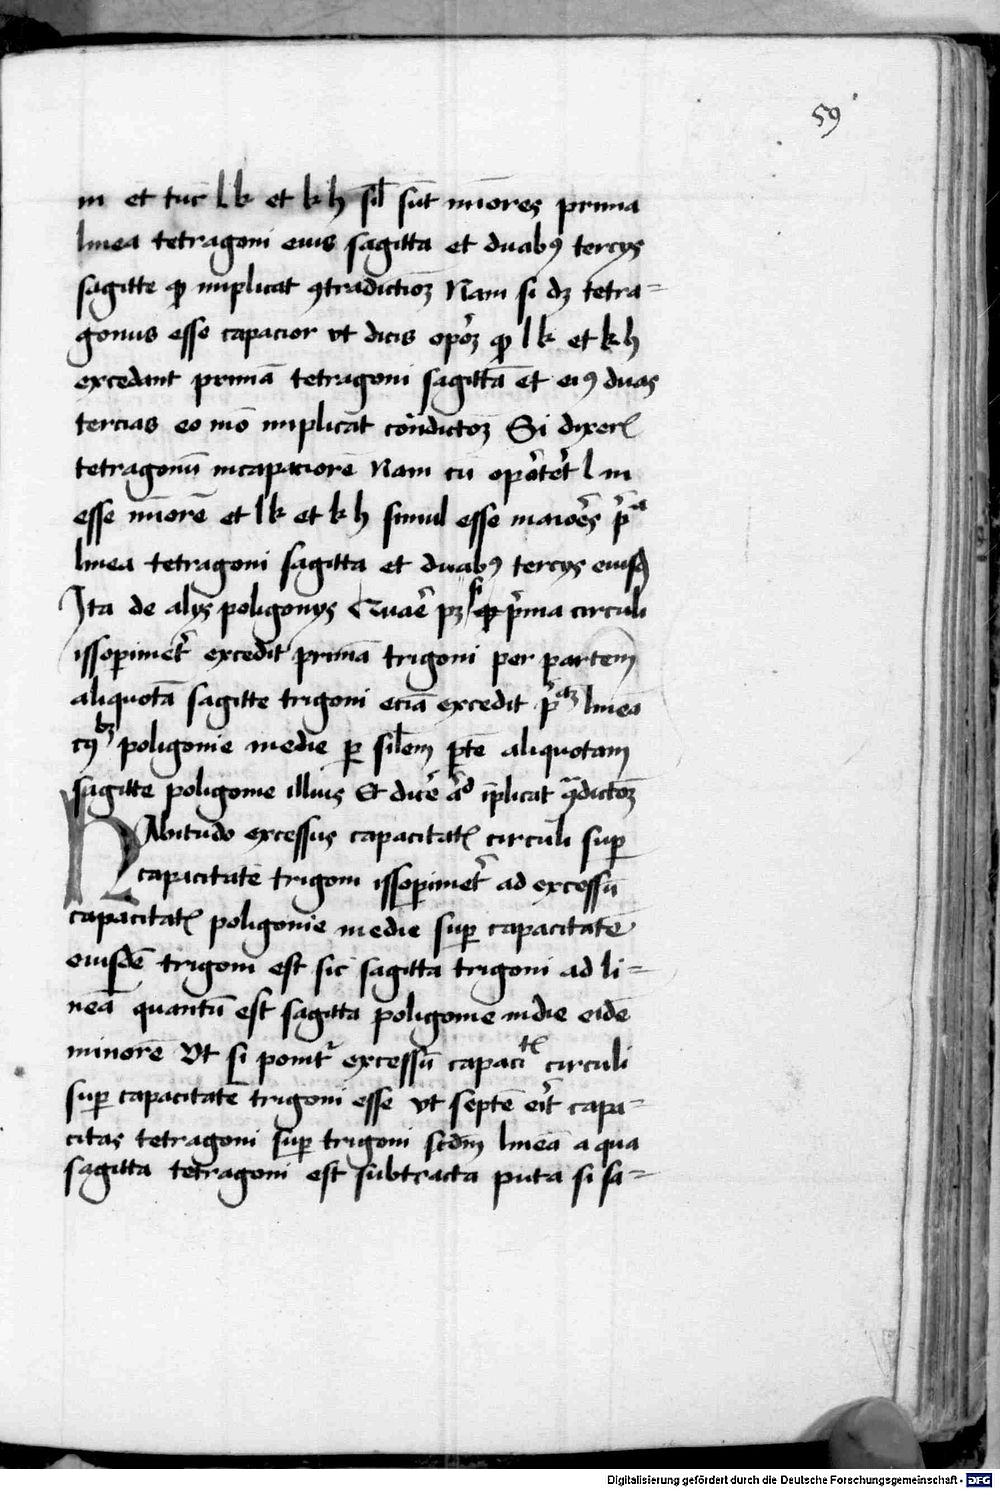 59
m et tūc l k et k h sil̄ sūt mīores prima
linea tetragoni eius sagitta et duabꝯ tercys
sagitte ꝙ implicat ꝯtradictioꝫ Nam si dꝫ tetra=
gonus esse capacior vt dicis oporꝫ ꝙ l k et k h
excedant primā tetragoni sagittā et eiꝯ duas
tercias eo mō implicat cōndictoꝫ Si dixeris
tetragonū incapaciorē Nam cū oportet̄ l m
esse mīorē et l k et k h simul esse maiores pͣ
linea tetragoni sagitta et duabꝯ tercys eiusꝗ
Ita de alys poligonys Quare pꝫ si prima circuli
issoperimet̄ excedit primā trigoni per partem
aliquotā sagitte trigoni eciā excedit pᵃꝫ lineā
poligonie medie ꝑ silem ꝑtē aliquotam
sagitte poligonie illius Et dice᷑ aᵈ īplicat ꝯdictoꝫ
HAbitudo excessus capacitatꝭ circuli suꝑ
capacitatē trigoni issoperimet̄ ad excessū
capacitatꝭ poligonie medie suꝑ capacitatē
eiusdē trigoni est sic sagitta trigoni ad li=
neā quantū est sagitta poligonie mdie eidē
minorē Vt si ponit᷑ excessū capacitꝭ circuli
suꝑ capacitatē trigoni esse vt septē erit capa=
citas tetragoni suꝑ trigoni scdm lineā a qua
sagitta tetragoni est subtracta puta si sa=
Digitalisierung gefördert durch die Deutsche Forschungsgemeinschaft - DFG